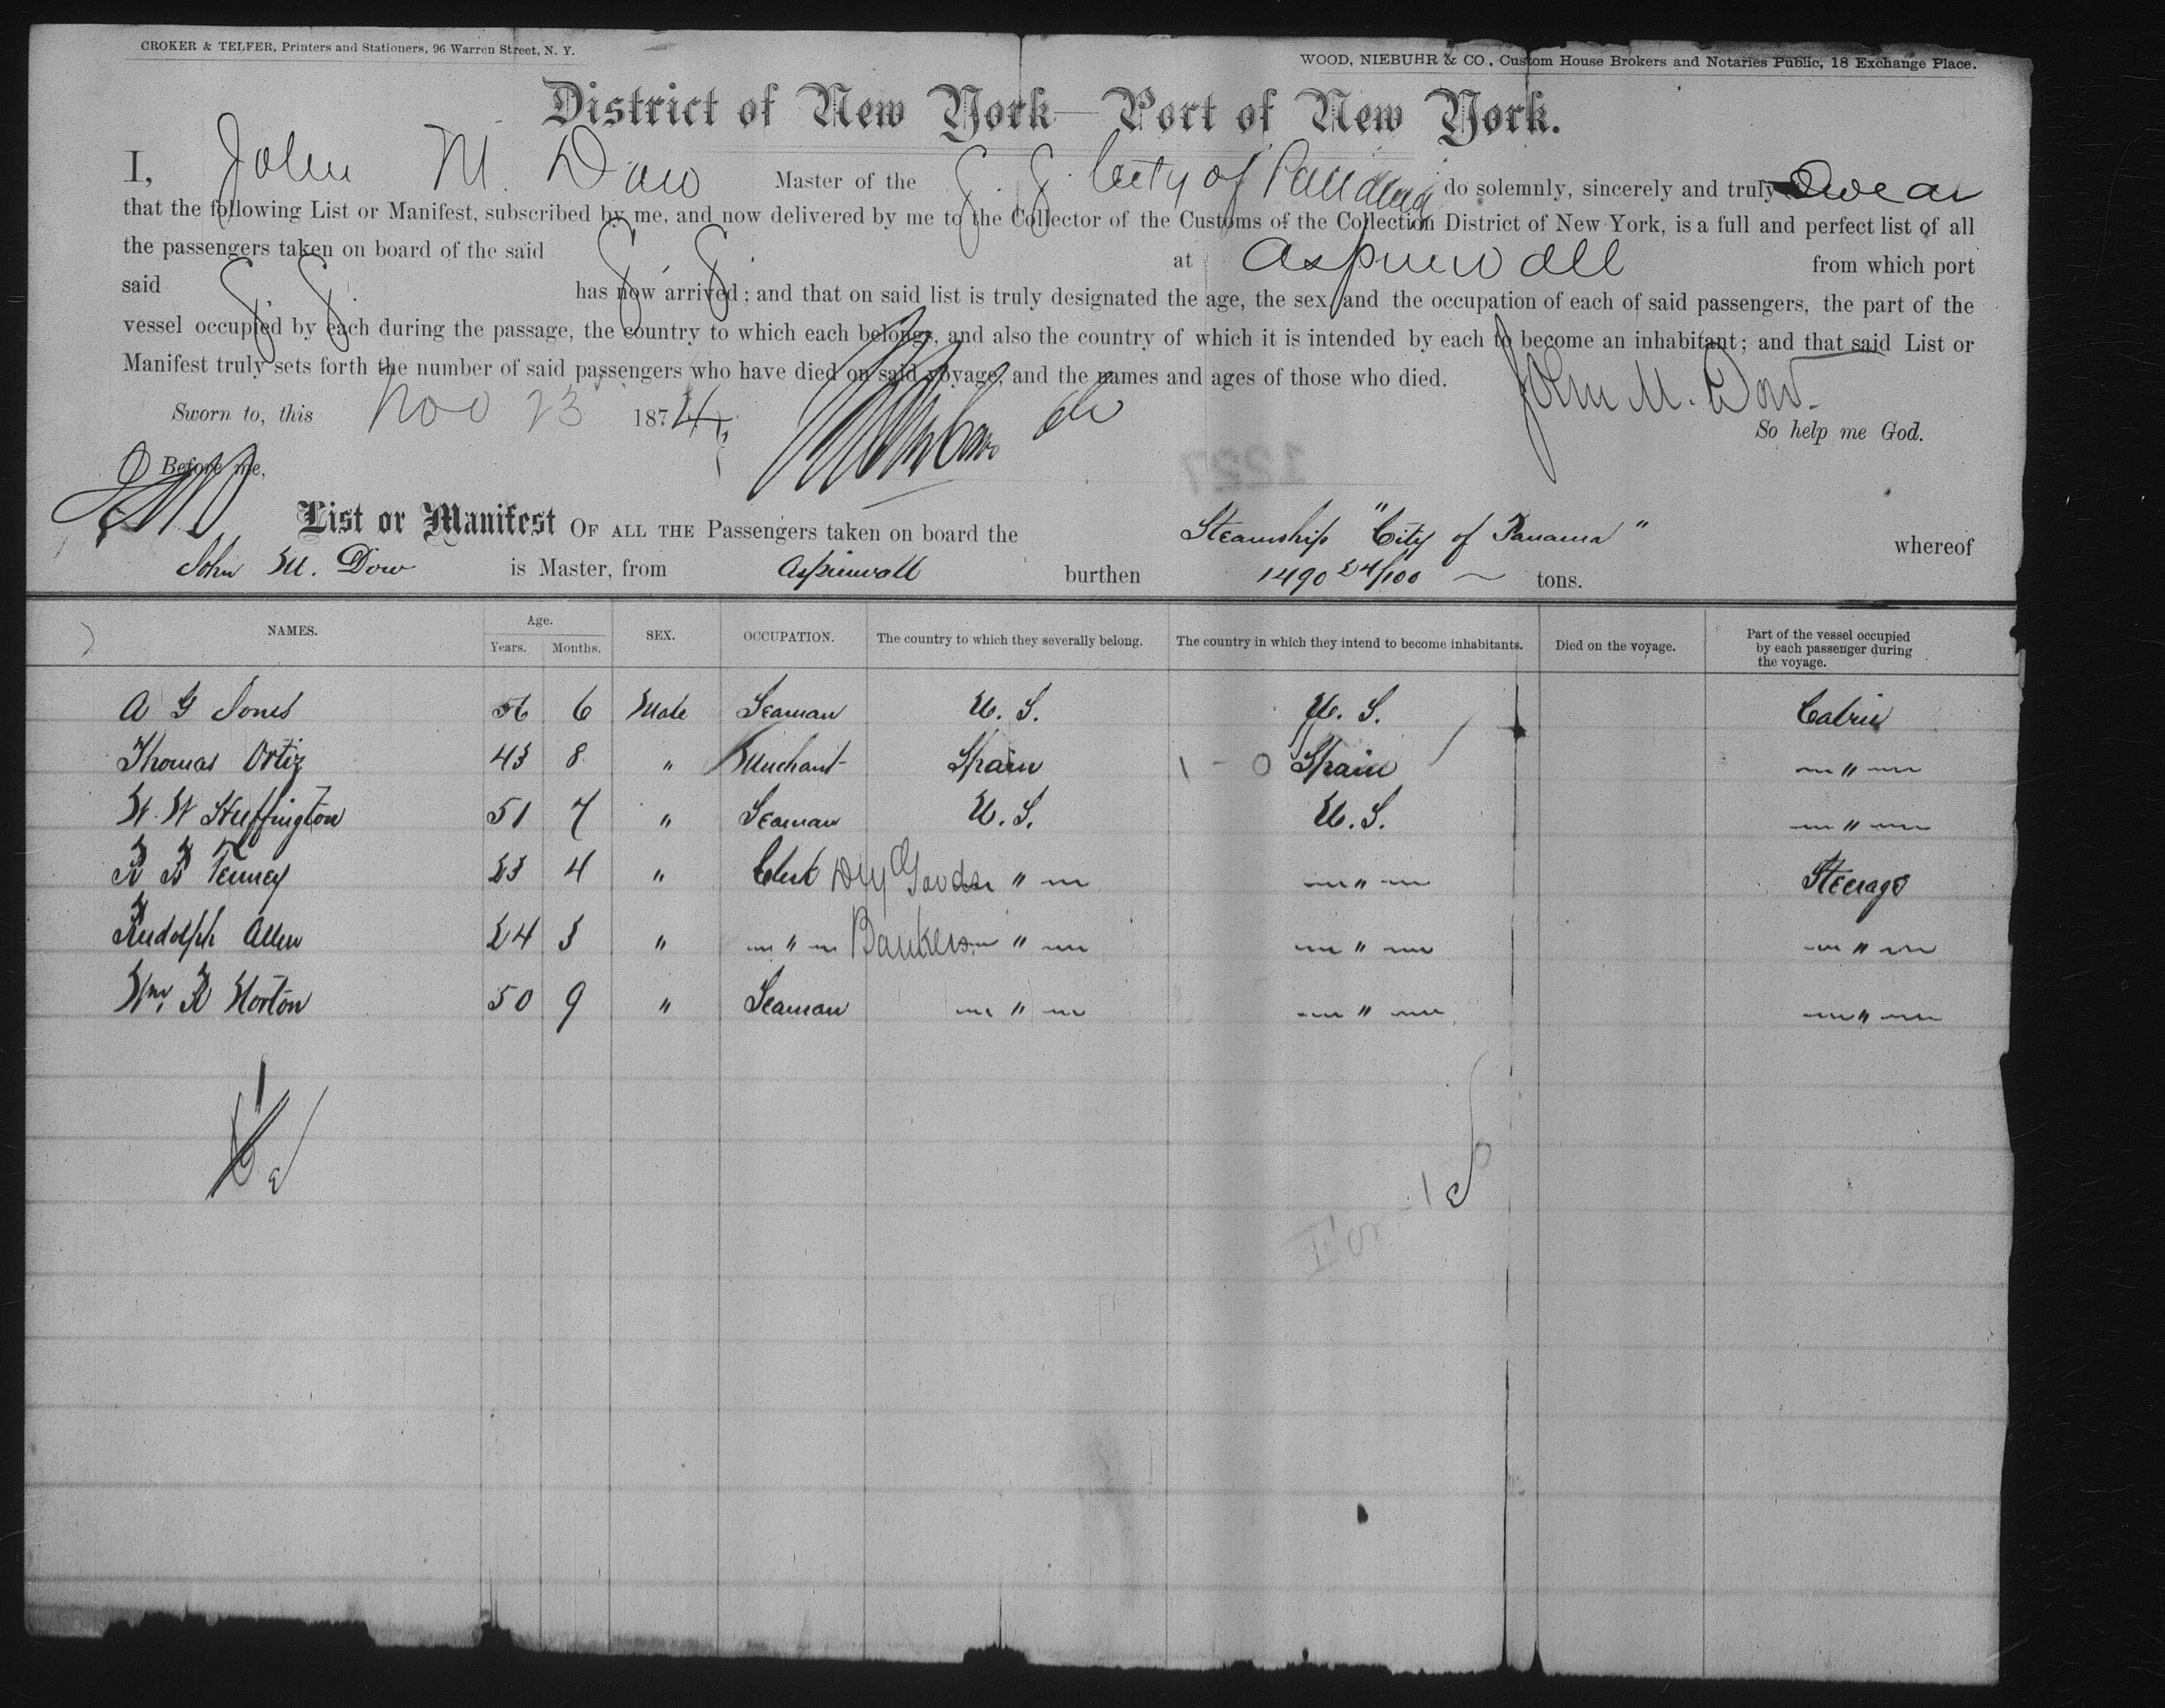 CROKER & TELFER, Printers and Stationers, 96 Warren Street, N. Y.
WOOD, NIEBUHR & CO., Custom House Brokers and Notaries Public, 18 Exchange Place.
District of New York—Port of New York.
I, John M. Dow Master of the S. S. City of Panama do solemnly, sincerely and truly Swear
that the following List or Manifest, subscribed by me, and now delivered by me to the Collector of the Customs of the Collection District of New York, is a full and perfect list of all
the passengers taken on board of the said S. S. at Aspinwall from which port
said S. S. has now arrived; and that on said list is truly designated the age, the sex and the occupation of each of said passengers, the part of the
vessel occupied by each during the passage, the country to which each belongs, and also the country of which it is intended by each to become an inhabitant; and that said List or
Manifest truly sets forth the number of said passengers who have died on said voyage, and the names and ages of those who died.
John M. Dow.
Sworn to, this Nov 23 1874
So help me God.
Before me,
1227
List or Manifest OF ALL THE Passengers taken on board the Steamship "City of Panama" whereof
John M. Dow is Master, from Aspinwall burthen 1490 24/100 tons.
NAMES. Age. Years. Months. SEX. OCCUPATION. The country to which they severally belong. The country in which they intend to become inhabitants. Died on the voyage. Part of the vessel occupied by each passenger during the voyage.
A G Jones 56 6 Male Seaman U. S. U. S. Cabin
Thomas Ortiz 43 8 " Merchant Spain Spain "
W. W Huffington 51 7 " Seaman U. S. U. S. "
Tenney 23 4 " Clerk Dry Goods " " Steerage
Rudolph Allen 24 3 " " Bankers " " "
Wm. R Horton 50 9 " Seaman " " "